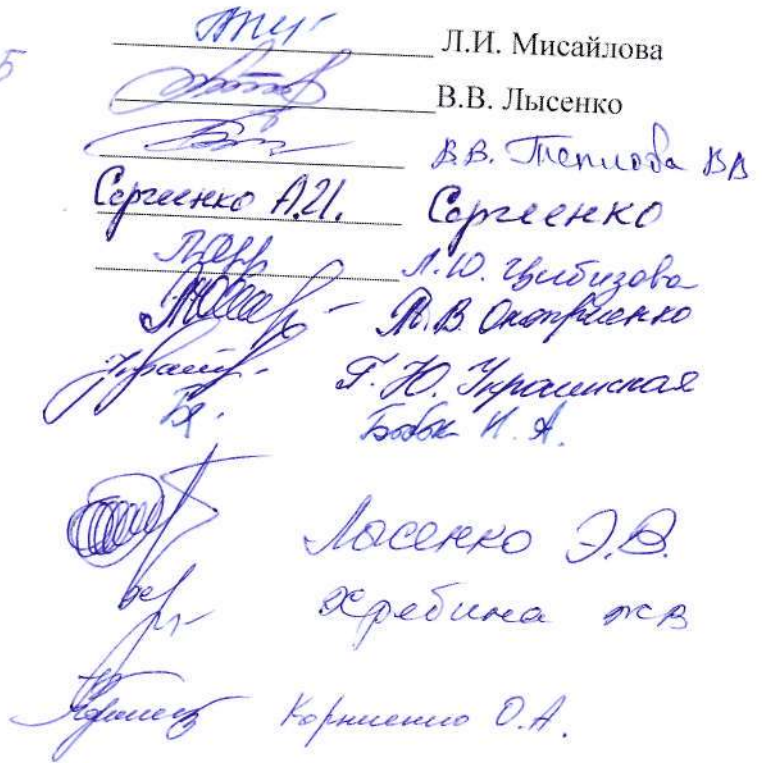 Л.И. Мисайлова
В.В. Лысенко
В.В. Теплова ВВ
Сергиенко А.И. Сергиенко
Л.Ю. Цыбизова
Оноприенко
Г.Ю. Украинская
Бобок И.А.
Лысенко Э.В.
Хребина
Корниенко О.А.